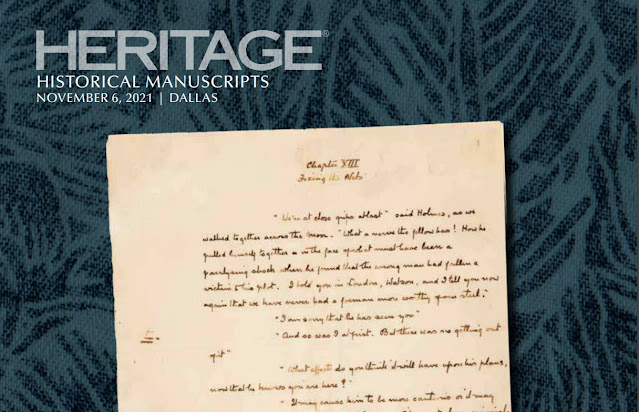 HERITAGE®
HISTORICAL MANUSCRIPTS
NOVEMBER 6, 2021 | DALLAS
Chapter XIII
Fixing the Nets
"We're at close grips at last" said Holmes, as we
walked together across the moor. "What a nerve the fellow has! How he
pulled himself together in the face of what must have been a
paralysing shock when he found that the wrong man had fallen a
victim to his plot. I told you in London, Watson, and I tell you now
again that we have never had a foeman more worthy of our steel."
"I am sorry that he has seen you"
"And so was I at first. But there was no getting out
of it"
"What effect do you think it will have upon his plans,
now that he knows you are here?"
"It may cause him to be more cautious or it may